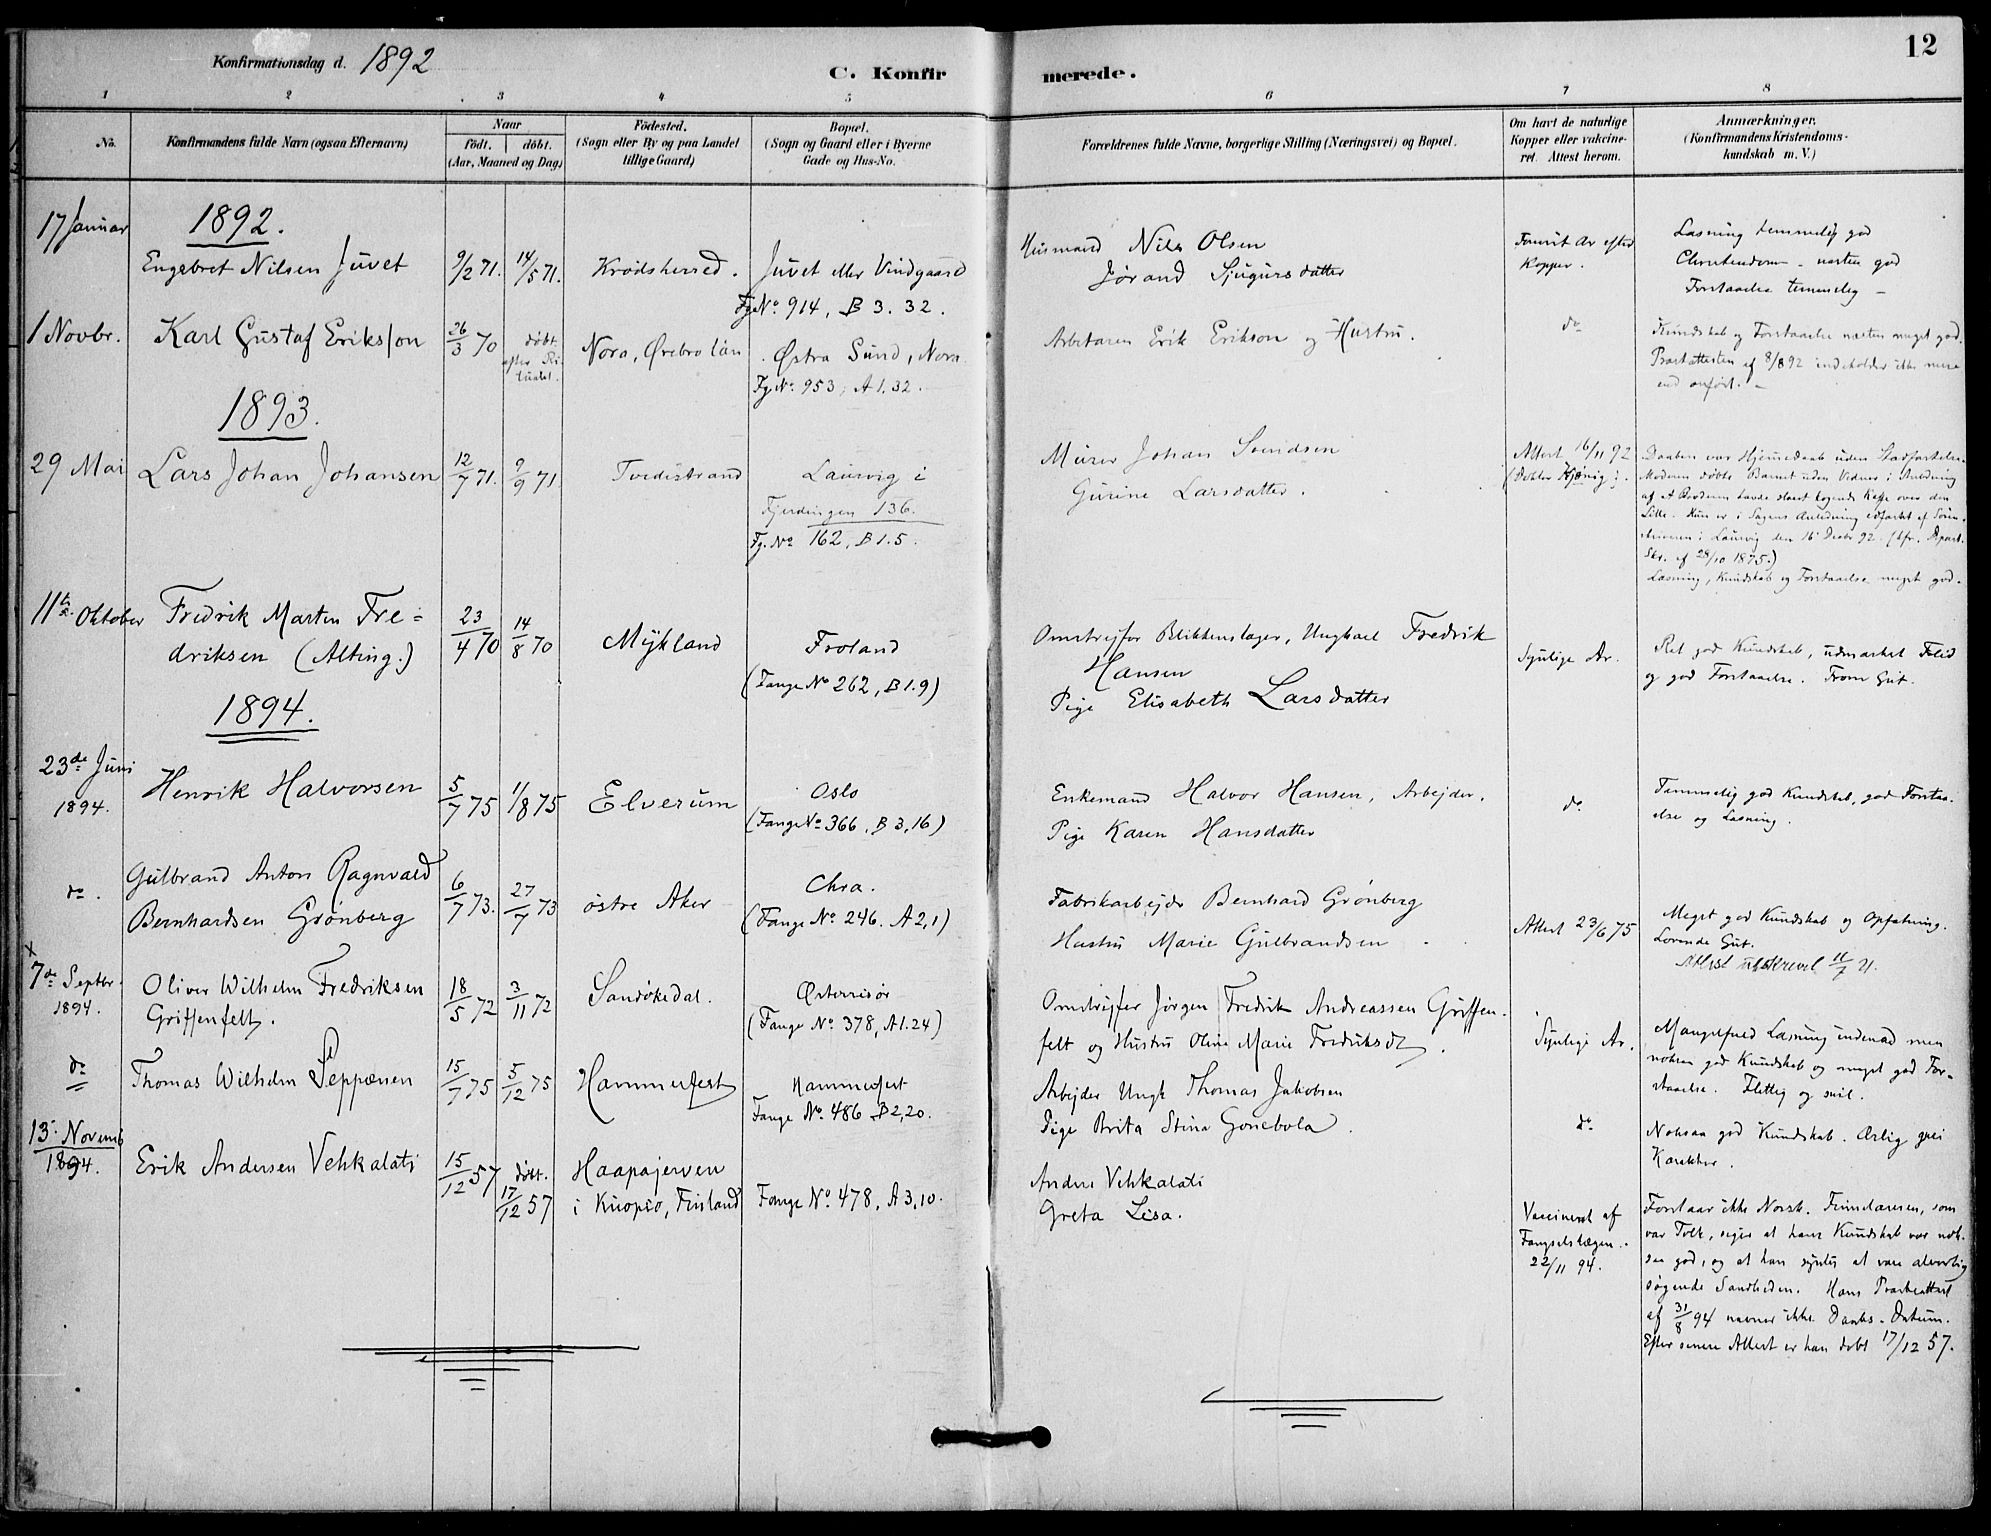 Konfirmationsdag d. 1892
C. Konfirmerede.
12
1 2 3 4 5 6 7 8
No.
Konfirmandens fulde Navn (ogsaa Efternavn)
Naar
Födt. döbt.
(Aar, Maaned og Dag)
Födested.
(Sogn eller By og paa Landet
tillige Gaard)
Bopæl.
(Sogn og Gaard eller i Byerne
Gade og Hus-No.
Forældrenes fulde Navne, borgerlige Stilling (Næringsvei) og Bopæl.
Om havt de naturlige
Kopper eller vakcine-
ret. Attest herom.
Anmærkninger.
(Konfirmandens Kristendoms-
kundskab m. V.)
1892.
17 Januar
Engebret Nilsen Juvet
9/2 71. 14/5 71.
Krødsherred.
Juvet eller Vindgaard
Fg No. 914, B 3. 32.
Husmand Nils Olsen
Jørand Sjugursdatter
Ar efter
Kopper.
Læsning temmelig god
Christendom - næsten god
Forstaaelse temmelig -
1 Novbr.
Karl Gustaf Eriksson
26/3 70
döbt
efter Ri-
tualet.
Nora, Ørebro län
Østra Sund, Nora
Fg No. 953, A 1. 32.
Arbetaren Erik Erikson og Hustru.
do
Kundskab og Forstaaelse næsten meget god.
Præstattesten af 8/8 92 indeholder ikke mere
end anført. -
1893.
29 Mai
Lars Johan Johansen
12/7 71. 9/9 71
Tvedestrand
Laurvig i
Fjerdingen 136.
Fg. No 162, B 1. 5.
Murer Johan Svendsen
Gurine Larsdatter.
Attest 16/11 92
(Doktor
Daaben var Hjemmedaab uden Stadfæstelse.
Moderen döbte Barnet uden Vidner i Anledning
af at Broderen havde slaaet kogende Kaffe over den
Lille. Hun er i Sagens Anledning edfæstet af Soren-
skriveren i Laurvig den 16 Decbr 92. (cfr. Depart.
Skr. af 28/10 1875.)
Læsning, Kundskab og Forstaaelse meget god.
11te Oktober
Fredrik Marten Fre=
driksen (Alting.)
23/4 70 14/8 70
Mykland
Froland
(Fange No 262, B 1. 9)
Omstrejfer Blikkenslager, Ungkarl Fredrik
Hansen
Pige Elisabeth Larsdatter
Synlige Ar.
Ret god Kundskab, udmærket Flid
og god Forstaaelse. From Gut.
1894.
23de Juni
1894.
Henrik Halvorsen
5/7 75 1/8 75
Elverum
Oslo
(Fange No 366, B 3, 16)
Enkemand Halvor Hansen, Arbejder.
Pige Karen Hansdatter
do
Temmelig god Kundskab, god Forstaa-
else og Læsning.
do.
Gulbrand Anton Ragnvald
Bernhardsen Grønberg
6/7 73. 27/7 73
østre Aker
Chra.
(Fange No 246. A 2, 1)
Fabrikarbejder Bernhard Grønberg
Hustru Marie Gulbrandsen
Attest 23/6 75
Meget god Kundskab og Opfatning.
Lovende Gut.
Attest utskrevet 11/7 21.
x
7de Septbr.
1894.
Oliver Wilhelm Fredriksen
Griffenfelt.
18/5 72 3/11 72
Sandøkedal.
Østerrisör
(Fange No. 378, A 1. 24)
Omstrejfer Jörgen Fredrik Andreassen Griffen-
felt og Hustru Oline Marie Fredriksdt.
Synlige Ar.
Mangelfuld Læsning indenad men
noksaa god Kundskab og meget god For-
staaelse. Flittig og snil.
do
Thomas Wilhelm Seppænen
15/7 75 5/12 75
Hammerfest
Hammerfest
Fange No. 486 B 2, 20.
Arbejder Ungk Thomas Jakobsen
Pige Brita Stina Gonebola.
do
Noksaa god Kundskab. Ærlig grei
Karakter.
13. Novemb
1894.
Erik Andersen Vehkalati
15/12 57
döbt.
17/12 57
Haapajerven
i Kuopio, Finland
Fange No. 478, A 3, 10.
Anders Vehkalati
Greta Lisa.
Vaccineret af
Fængselslægen.
22/11 94.
Forstaar ikke Norsk. Finnelæreren, som
var Tolk, siger at hans Kundskab var nok-
saa god, og at han synes at være alvorlig
søgende Sandheden. Hans Præsteattest
af 31/8 94 nævner ikke Daabs-Datum.
Efter senere Attest er han döbt 17/12 57.